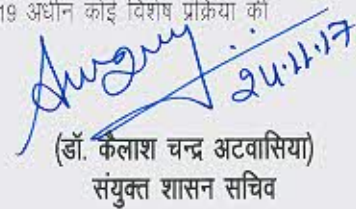 19 अधीन कोई विशेष प्रक्रिया की
24.11.17
(डॉ. कैलाश चन्द्र अटवासिया)
संयुक्त शासन सचिव